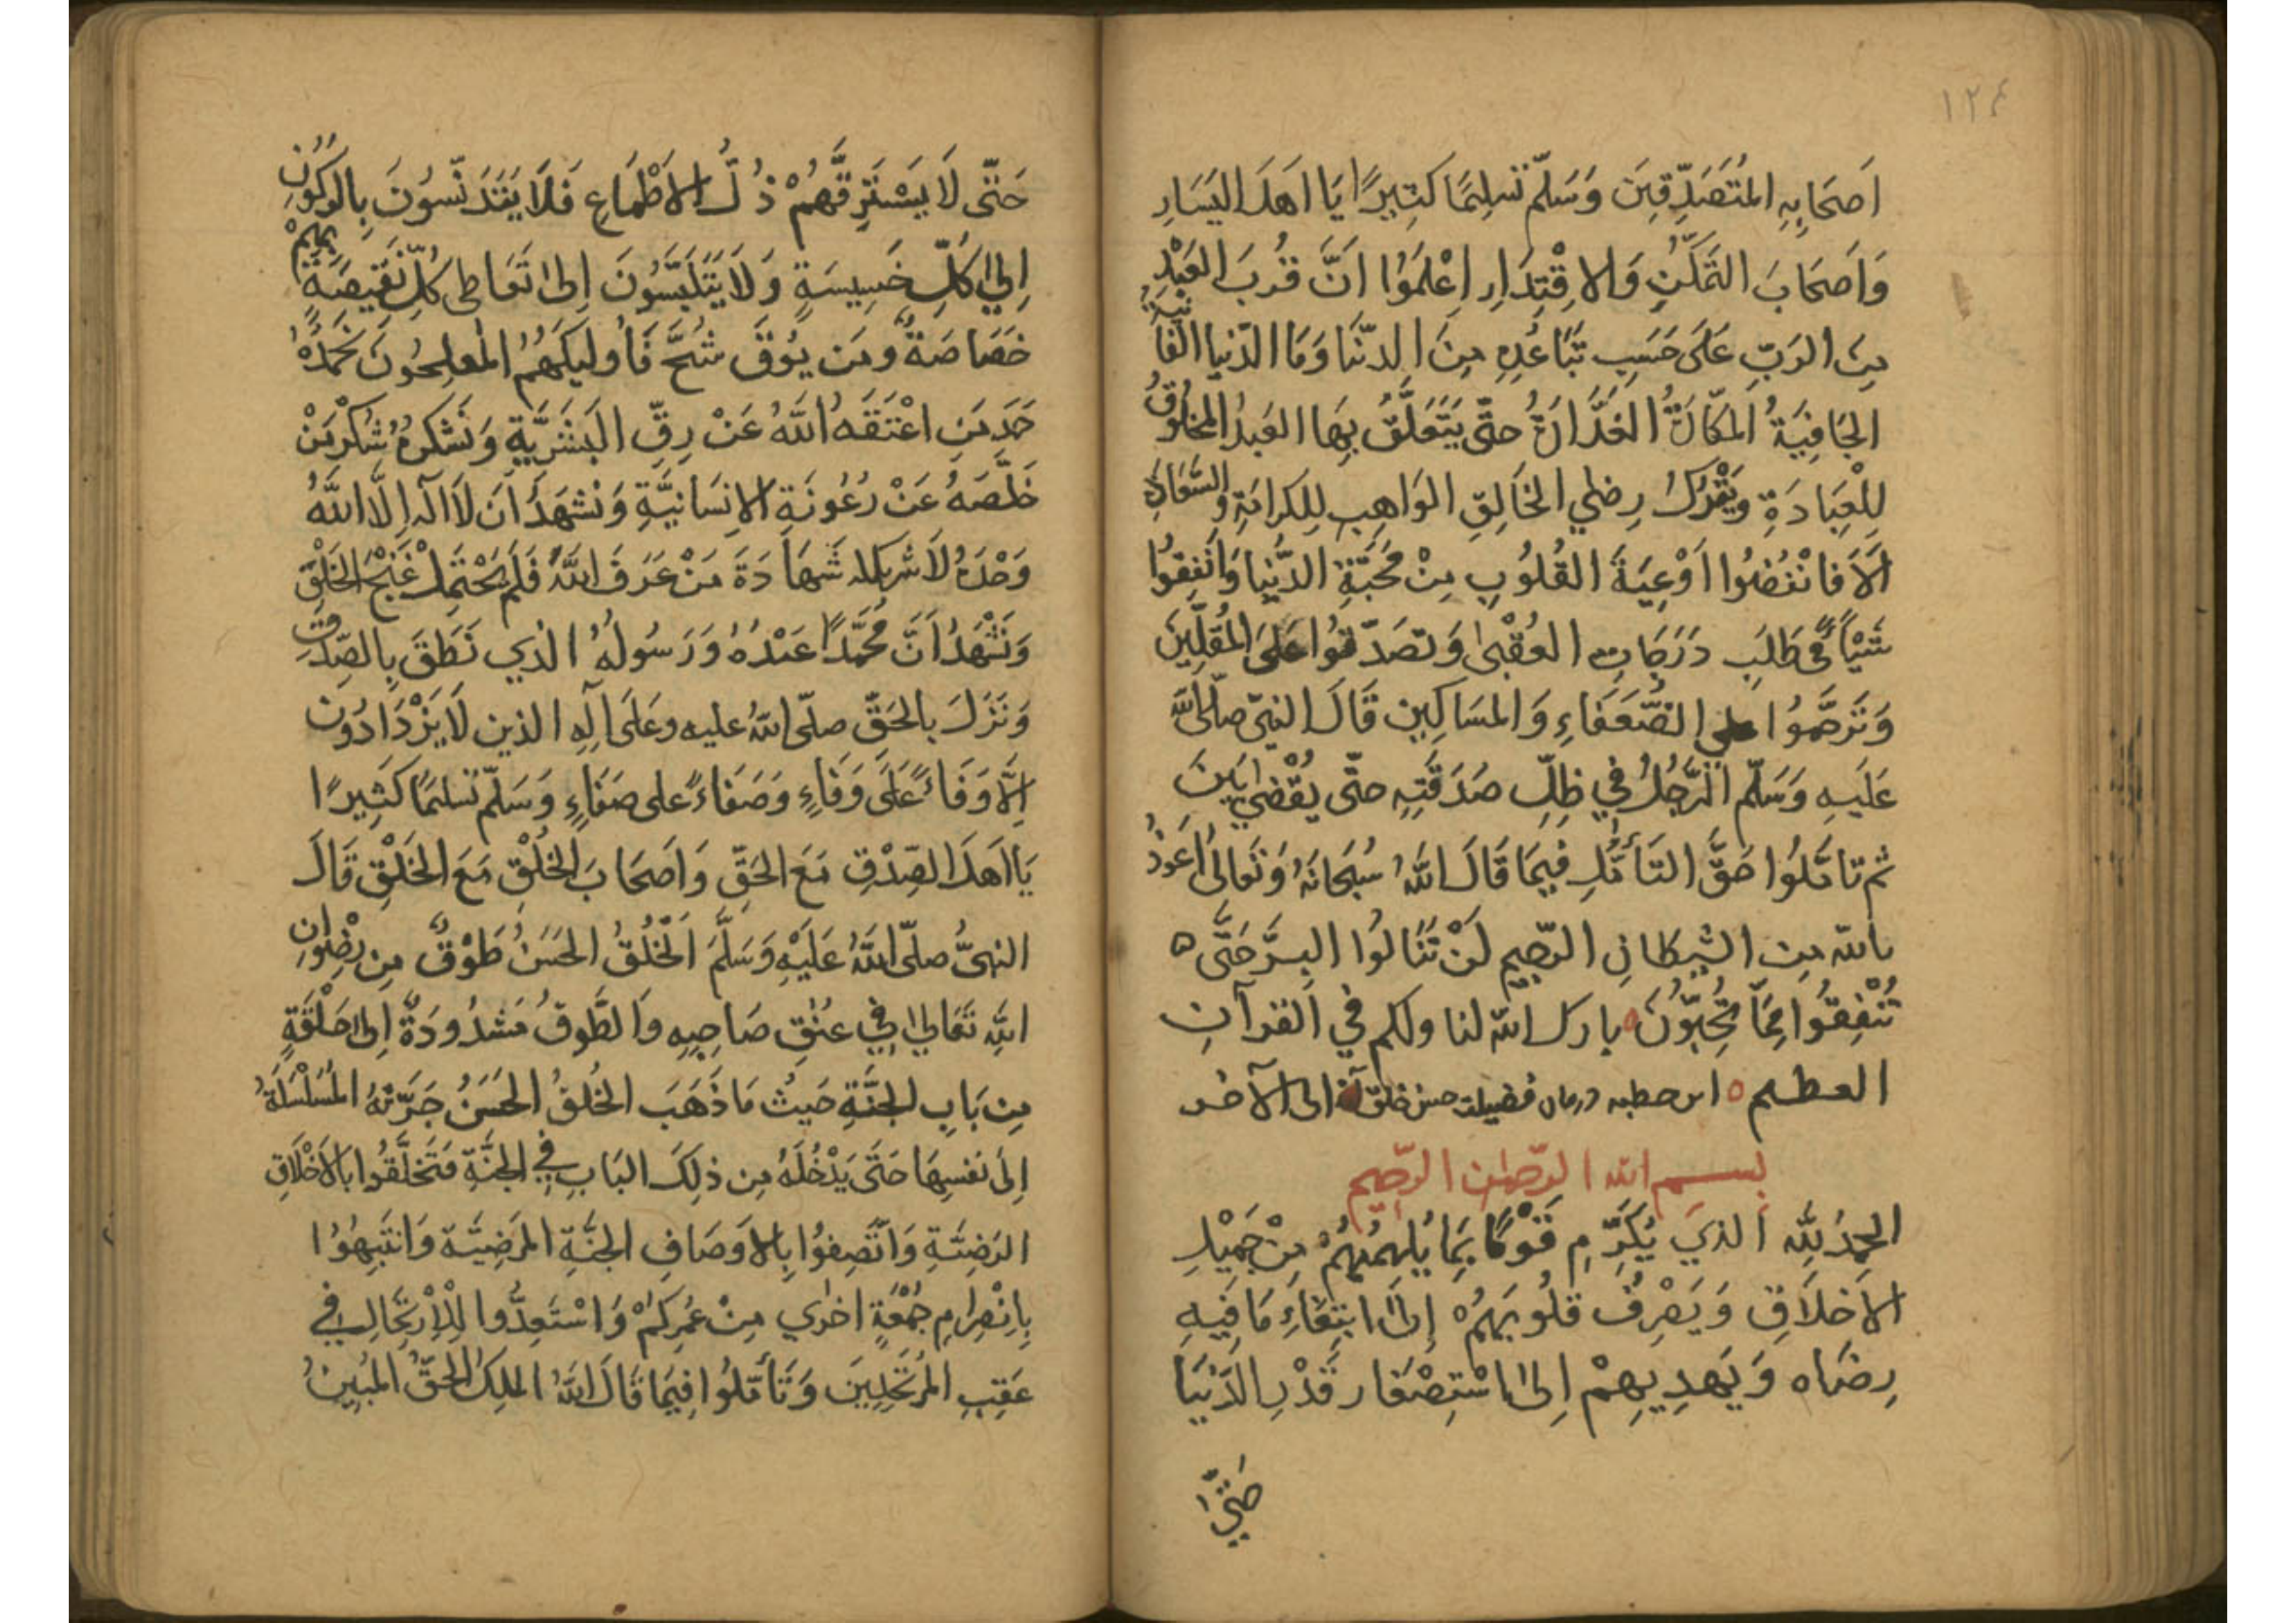 ١٢٤
اَصحَابِهِ المُتَصَدِّقِينَ وَسَلَّم تَسلِيمًا كَثِيرًا يَا اَهلَ اليَسَارِ
وَاَصحَابَ التَّمَكُّنِ وَالاِقْتِدَارِ اِعْلَمُوا اَنَّ قُربَ العَبْدِ
مِنَ الرَبِّ عَلَى حَسَبِ تَبَاعُدِهِ مِنَ الدنّيَا وَمَا الدّنيا الفَانِيَةُ
الجَافِيَةُ المَكَّارَةُ الغَدَّارَةُ حتّى يَتَعَلَّقَ بِهَا العَبدُ المخلُوقُ
لِلْعِبَادَةِ وَيَتْرُكُ رِضَي الخَالِقِ الوَاهِبِ لِلكرَامَةِ وَالسَّعَادَةِ
اَلَا فَانْفُضُوا اَوْعِيَةَ القُلُوبِ مِنْ مَحَبَّةِ الدُّنيا وَاَنْفِقُوا
شَيْأً فِي طَلَبِ دَرَجَاتِ العُقْبٰى وَتصَدّقوُا عَلىَ المُقَلِّينَ
وَتَرَحَّمُوا علي الضُّعَفَاءِ وَالمَسَاكِينِ قَالَ النبيّ صلّى الله
عَلَيهِ وَسَلَّم الرَّجُلُ في ظِلِّ صَدَقَتِهِ حتّى يُقْضٰي بَينَ
ثم تامَّلُوا حَقَّ التَأَمُّلِ فِيمَا قَالَ اللهُ سُبحَانَهُ وَتَعَالٰى اَعُوذُ
بالله مِن الشيطانِ الرّجيم لَنْ تَنَالُوا البِرَّ حَتَّى ه
تُنْفِقُوا مِمَّا تُحِبّوُنَ ه بارك الله لنا ولكم في القرآنِ
العظيم ه اين خطبه در بيان فضيلت حسن خلق الى الآخر
بسم الله الرّحمٰن الرّحيم
الحمدُ لِلّهِ الذي يُكَرِّمِ قَوْمًا بِمَا يُلهِمُهُمْ مِنْ جَمِيْلِ
الاَخلَاقِ وَيَصْرِفُ قلُوبَهُمْ إِلىٰ ابتِغَاءِ مَا فِيهِ
رِضَاه وَيَهدِيهِمْ اِلىٰ اسْتِصْغَارِ قَدْرِ الدّنْيَا
حَتّٰى
حَتّى لَا يَسْتَرِقَّهُمْ ذُلُّ الاَطْمَاعِ فَلَا يَتَدَنَّسُونَ بِالرُكُونِ
اِلىٰ كُلِّ خَسِيسَةٍ وَلَا يَتَلَبَّسُونَ اِلىٰ تَعَاطِى كُلِّ نَقِيصَةٍ بِهِمْ
خَصَاصَةٌ وَمَن يُوقَ شُحَّ فَأُولٰيِكَ هُمُ المُفلِحُونَ نَحمَدُهُ
حَمدَ مَنِ اعْتَقَهُ اللهُ عَنْ رِقِّ البَشَرِيَّةِ وَنَشكُرهُ شُكْرَ مَنْ
خَلَّصَهُ عَنْ رُعُونَةِ الاِنسَانيَّةِ وَنَشهَدُ اَن لَا اله اِلَّا اللهُ
وَحْدَهُ لَا شريك له شَهَادَةَ مَنْ عَرَفَ اللهَ فَلَم يَحْتَمِلْ غَنْجَ الخَلْقِ
وَنَشْهَدُ اَنَّ مُحَمَّدًا عَبْدُهُ وَرَسُولُهُ الذي نَطَقَ بِالصّدقِ
وَنَزَلَ بالحَقّ صلّى اللهُ عليه وعَلَى آلِهِ الذين لَا يَزْدَادُونَ
اِلّا وَفَاءً عَلَى وَفَاءٍ وَصَفَاءً على صَفَاءٍ وَسَلّمَ تَسلِيمًا كَثِيرًا
يَا اَهلَ الصِدْقِ مَعَ الحَقّ وَاَصحَابَ الخُلْقِ مَعَ الخَلْقِ قَالَ
النبىُّ صلّى اللهُ عَلَيْهِ وَسَلَّمَ الخُلُقُ الحَسَنُ طَوْقٌ مِن رِضْوانِ
اللهِ تَعَالىٰ فِي عنُقِ صَاحِبِهِ وَالطَّوقُ مَشدُودَةٌ اِلىٰ حَلْقَةٍ
مِن بَابِ الجنَّةِ حَيثُ مَا ذَهَبَ الخُلقُ الحَسَنُ جَرَّتْهُ المُسَلْسَلَةُ
اِلَى نَفسِهَا حَتَى يَدْخُلَهُ مِن ذلِكَ البَابِ فِي الجنَّةِ فَتَخَلَّقُوا بالاَخْلَاقِ
الرَضِيَّةِ وَاتَّصِفوُا بِالاَوصَافِ الجنَّةِ المرَضِيَّة وَانتَبِهُوا
بِاِنْصِرامِ جُمْعَةٍ اخرٰي مِنْ عُمرِكُمْ وَاسْتَعِدُّوا لِلْاِرْتِحَالِ فِي
عَقِبِ المُرتَحِلِينَ وَتَأَمّلُوا فِيمَا قَالَ اللهُ الملِكُ الحَقُّ المُبِينُ